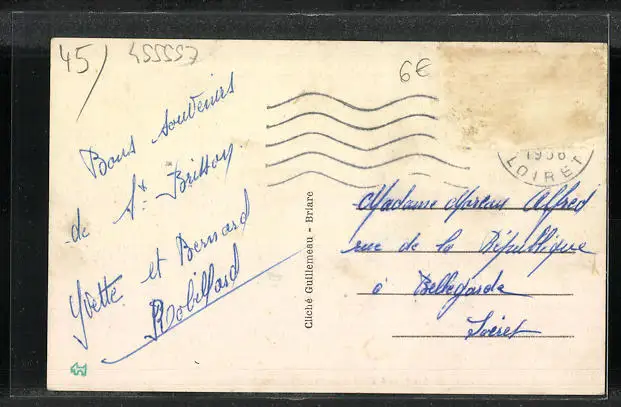 45)
455557
6€
Bons souvenirs
de St. Brisson.
Yvette et Bernard
Robillard
Cliché Guillemeau - Briare
LOIRET
Madame Moreau Alfred
rue de la République
à Bellegarde
Loiret